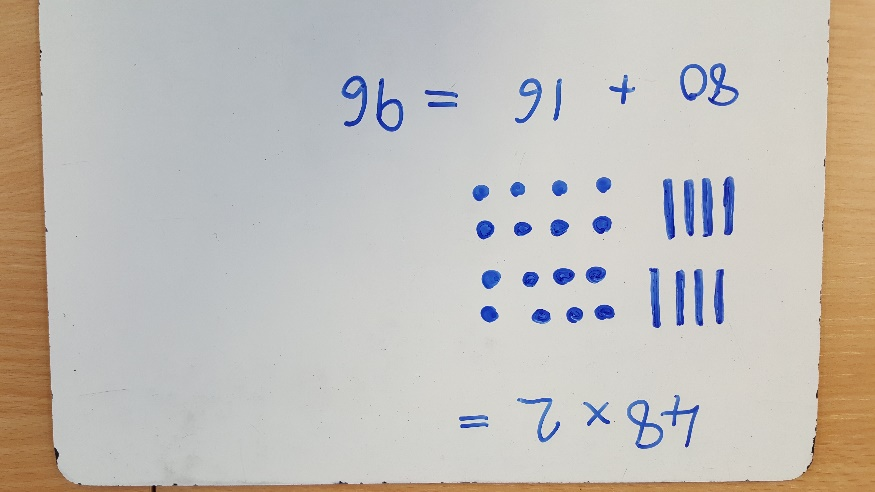 48 × 2 =
80 + 16 = 96